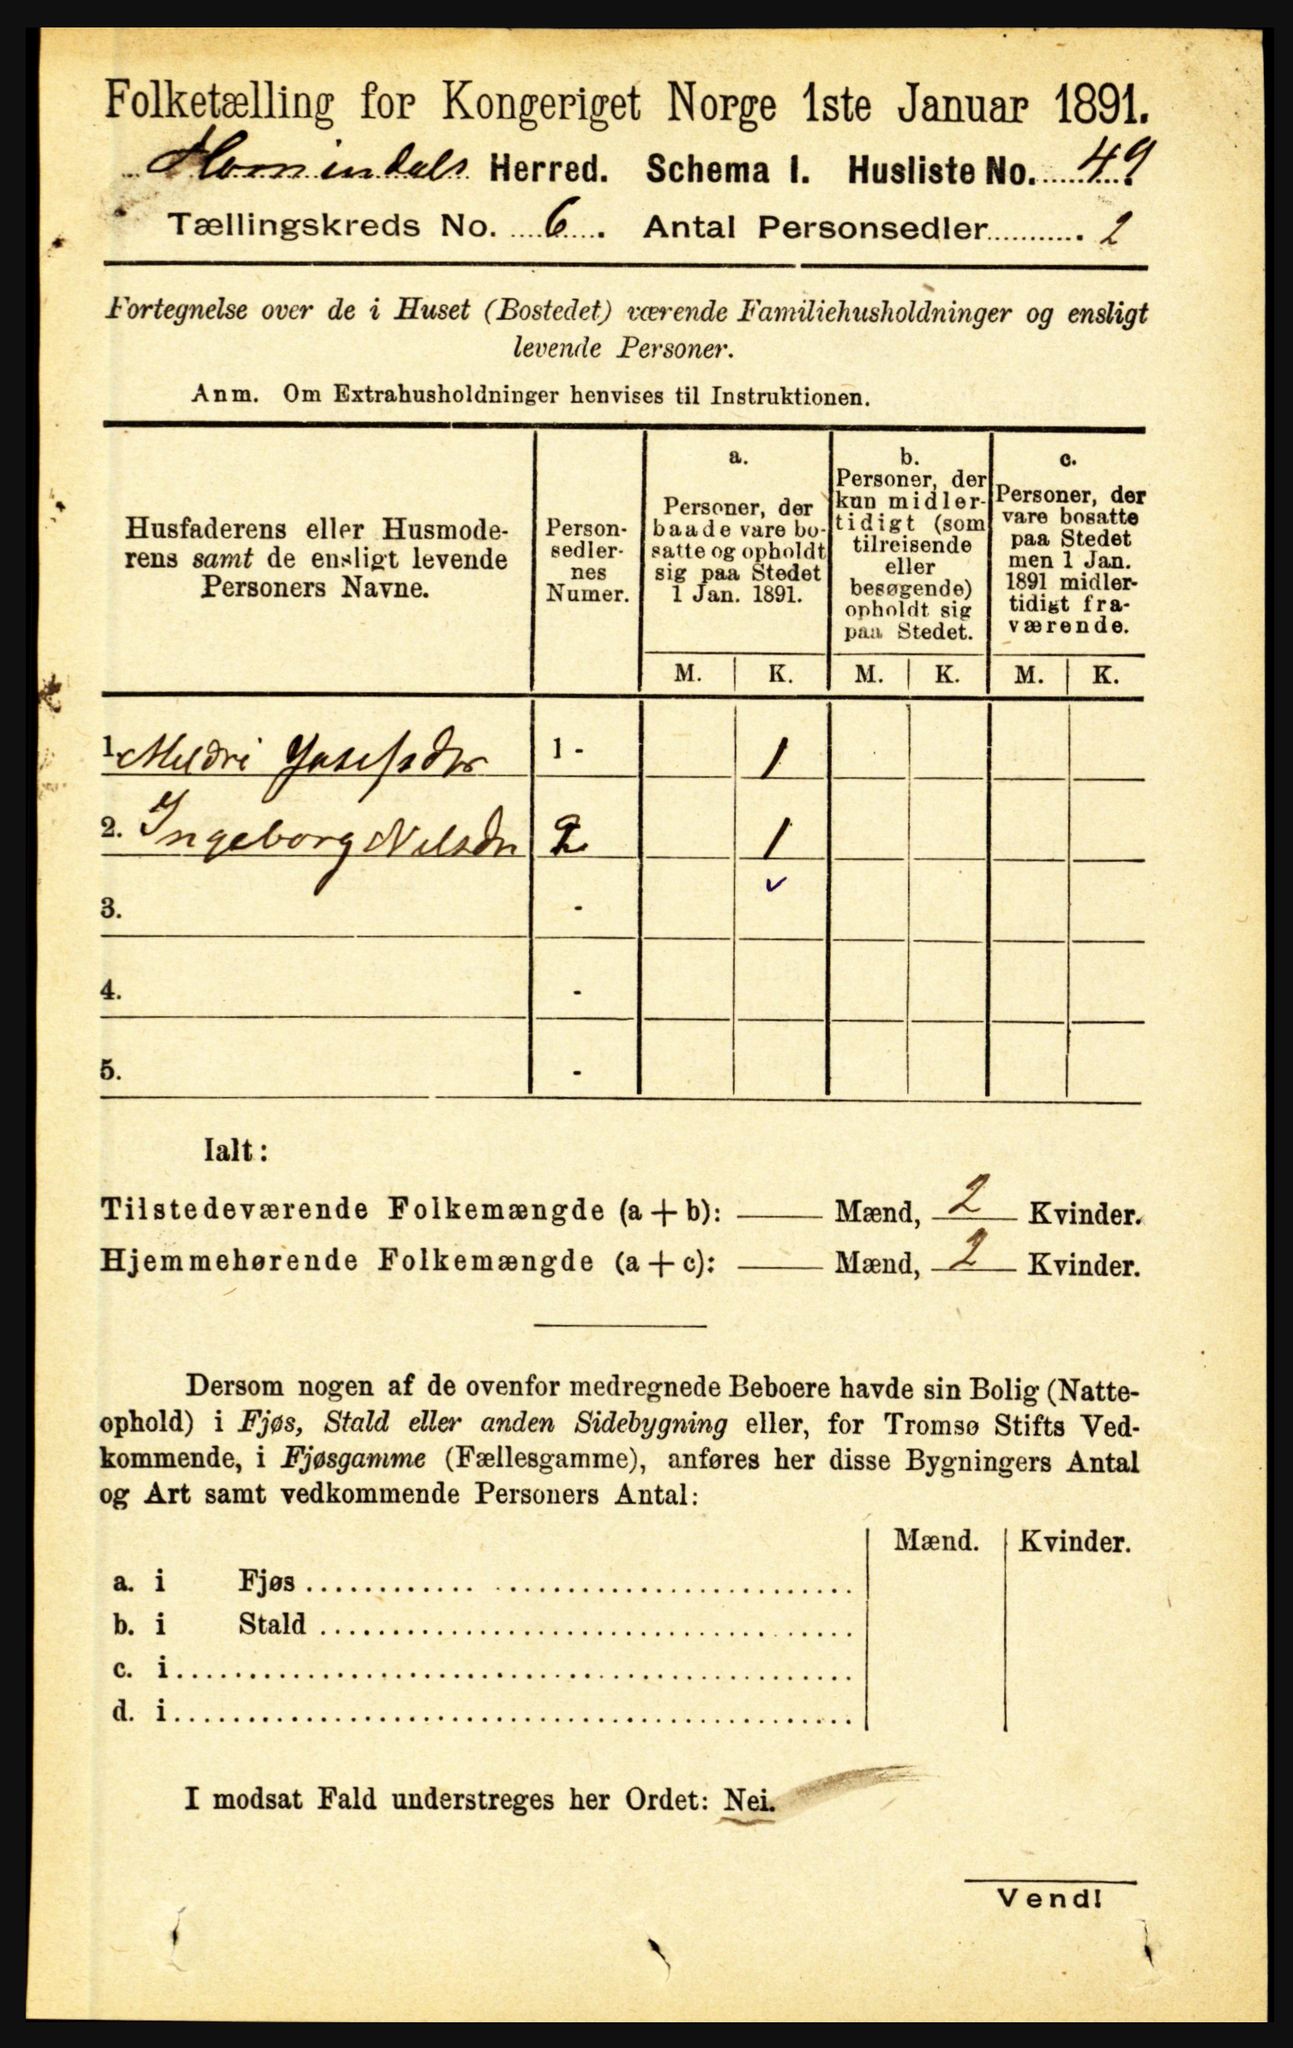 Folketælling for Kongeriget Norge 1ste Januar 1891.
Hornindals Herred. Schema I. Husliste No. 49
Tællingskreds No. 6. Antal Personsedler 2
Fortegnelse over de i Huset (Bostedet) værende Familiehusholdninger og ensligt
levende Personer.
Anm. Om Extrahusholdninger henvises til Instruktionen.
Husfaderens eller Husmode-
rens samt de ensligt levende
Personers Navne.
Person-
sedler-
nes
Numer.
a.
Personer, der
baade vare bo-
satte og opholdt
sig paa Stedet
1 Jan. 1891.
b.
Personer, der
kun midler-
tidigt (som
tilreisende
eller
besøgende)
opholdt sig
paa Stedet.
c.
Personer, der
vare bosatte
paa Stedet
men 1 Jan.
1891 midler-
tidigt fra-
værende.
M. K. M. K. M. K.
1. Meldri Josefsdtr 1 - 1
2. Ingeborg Nilsdtr 2 1
3. -
4. -
5. -
Ialt:
Tilstedeværende Folkemængde (a + b): — Mænd, 2 Kvinder.
Hjemmehørende Folkemængde (a + c): — Mænd, 2 Kvinder.
Dersom nogen af de ovenfor medregnede Beboere havde sin Bolig (Natte-
ophold) i Fjøs, Stald eller anden Sidebygning eller, for Tromsø Stifts Ved-
kommende, i Fjøsgamme (Fællesgamme), anføres her disse Bygningers Antal
og Art samt vedkommende Personers Antal:
Mænd. Kvinder.
a. i Fjøs
b. i Stald
c. i
d. i
I modsat Fald understreges her Ordet: Nei.
Vend!